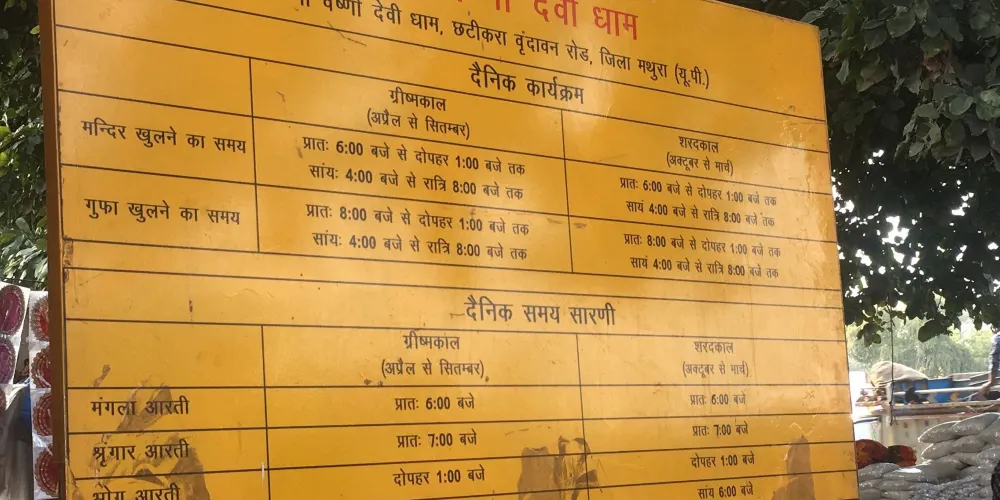 देवी धाम
वैष्णो देवी धाम, छटीकरा वृंदावन रोड, जिला मथुरा (यू.पी.)
दैनिक कार्यक्रम
ग्रीष्मकाल
(अप्रैल से सितम्बर)
शरदकाल
(अक्टूबर से मार्च)
मन्दिर खुलने का समय
प्रातः 6:00 बजे से दोपहर 1:00 बजे तक
सांयः 4:00 बजे से रात्रि 8:00 बजे तक
प्रातः 6:00 बजे से दोपहर 1:00 बजे तक
सायं 4:00 बजे से रात्रि 8:00 बजे तक
गुफा खुलने का समय
प्रातः 8:00 बजे से दोपहर 1:00 बजे तक
सांयः 4:00 बजे से रात्रि 8:00 बजे तक
प्रातः 8:00 बजे से दोपहर 1:00 बजे तक
सायं 4:00 बजे से रात्रि 8:00 बजे तक
दैनिक समय सारणी
ग्रीष्मकाल
(अप्रैल से सितम्बर)
शरदकाल
(अक्टूबर से मार्च)
मंगला आरती
प्रातः 6:00 बजे
प्रातः 6:00 बजे
श्रृंगार आरती
प्रातः 7:00 बजे
प्रातः 7:00 बजे
भोग आरती
दोपहर 1:00 बजे
दोपहर 1:00 बजे
सांय 6:00 बजे